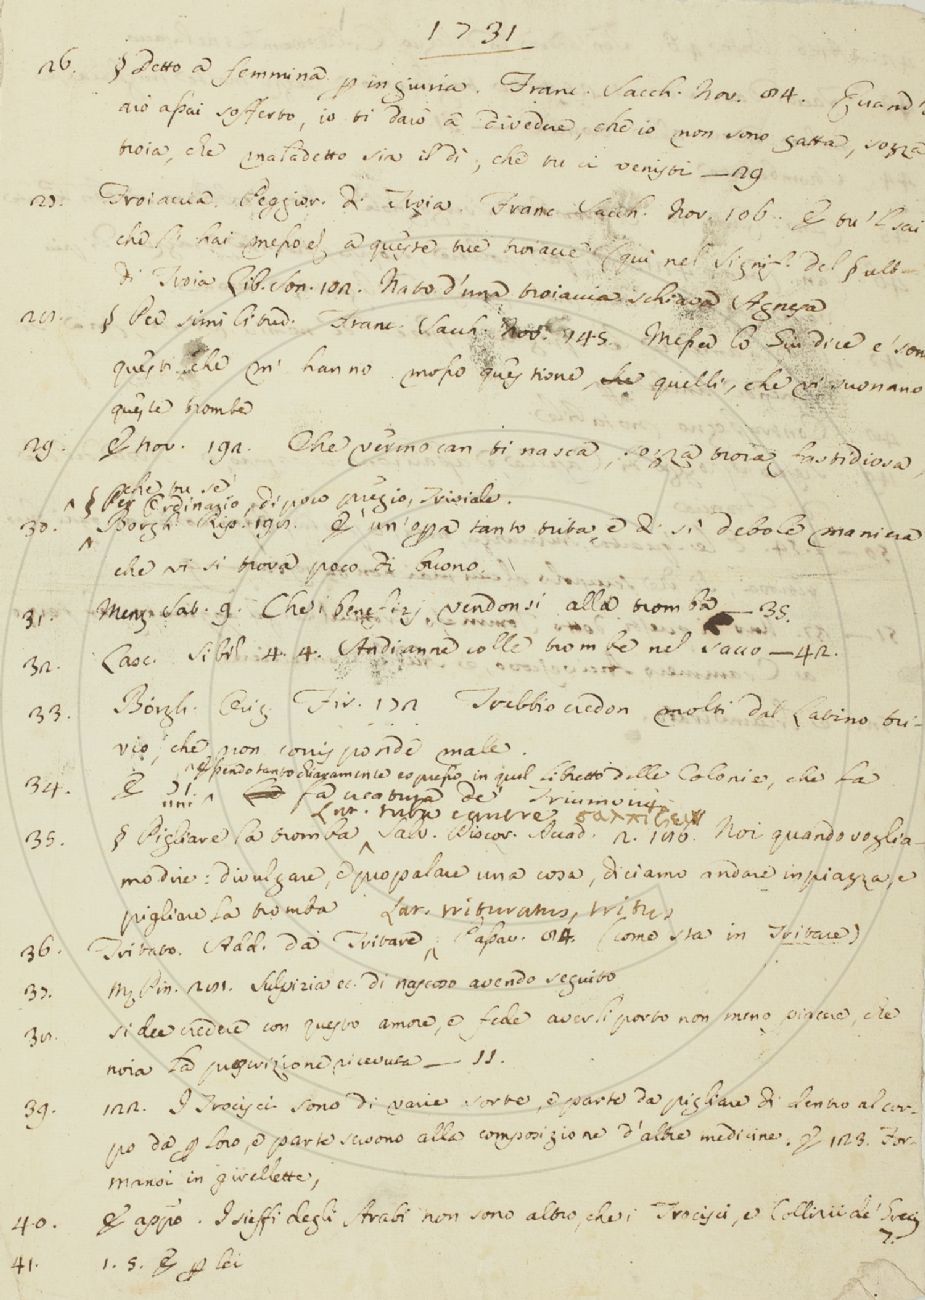 1731
26. § Detto a femmina p ingiuria. Franc. Sacch. Nov. 84. Quand'
aiò assai sofferto, io ti darò a divedere, che io non sono gatta, sozza
troia, che maladetto sia il dì, che tu ci venisti — 29
27. Troiaccia. Peggior. di Troia. Franc. Sacch. Nov. 106. E tu'l sai
che li hai messo a queste tue troiacce (qui nel signif. del §
di Troia Lib. Son. 102. Nato d'una troiaccia schiava Agnesa
28. § Per similitud. Franc. Sacch. Nov. 145. Messer lo Giudice e' son
questi che m' hanno mosso questione, che quelli, che vi suonano
queste trombe
29. E nov. 192. Che vermocan ti nasca, sozza troia fastidiosa,
che tu se'
§ Per Ordinario, di poco pregio, Triviale.
30. Borgh. Rip. 191. E un'opra tanto trita, e di sì debole maniera
che vi si trova poco di buono.
31. Menz. Sat. 9. Che i benefizj vendonsi alla tromba — 35.
32. Casc. Sibil. 4. 4. Andianne colle trombe nel sacco — 42.
33. Borgh. Orig. Fir. 172 Trebbio credon molti dal Latino tri-
vio, che non corrisponde male.
essendo tanto chiaramente espresso in quel libretto delle Colonie, che la
34. E
fa creatura de' Triumviri
Lat. tuba canere σαλπίζειν
35. § Pigliare la tromba Salv. Discor. Accad. 2. 186. Noi quando voglia-
mo dire: divulgare, e propalare una cosa, diciamo andare in piazza, e
pigliare la tromba Lat. trituratus, tritus
36. Tribato. Add. da Tribare; Passav. 84. (come sta in Tribare)
37. M. Pin. 281. Sulpizia ec. di nascoso avendo seguito
38. si dee credere con questo amore, e fede averli porto non meno piacere, che
noia la proscrizione ricevuta — 11.
39. 122. I Trocisci sono di varie sorte, e parte da pigliare di dentro al cor-
po da p loro, e parte servono alla composizione d'altre medicine. E 123. For-
mansi in girellette,
40. E appo. I sieffi degli Arabi non sono altro, che i Trocisci, e Collirii de' Greci
7.
41. 1. 5. E p lei